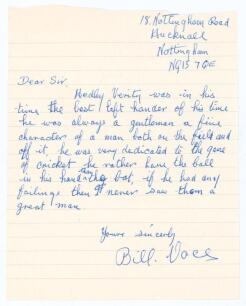 18. Nottingham Road
Hucknall
Nottingham
NG15 7QE
Dear Sir.
Hedley Verity was in his
time the best left hander of his time
he was always a gentleman a fine
character of a man both on the field and
off it, he was very dedicated to the game
of cricket he rather have the ball
in his hand than the bat, if he had any
failings then I never saw them a
great man
Yours sincerely
Bill. Voce